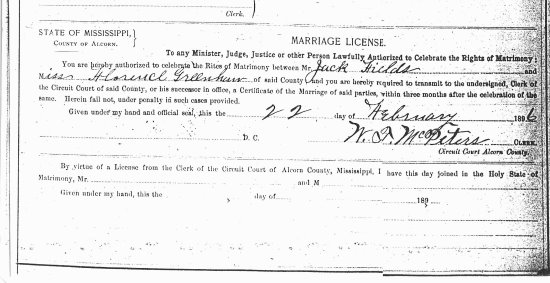 Clerk.
STATE OF MISSISSIPPI,
COUNTY OF ALCORN.
MARRIAGE LICENSE.
To any Minister, Judge, Justice or other Person Lawfully Authorized to Celebrate the Rights of Matrimony:
You are hereby authorized to celebrate the Rites of Matrimony between Mr. Jack Fields and
Miss Florence Greenhaw of said County, And you are hereby required to transmit to the undersigned, Clerk of
the Circuit Court of said County, or his successor in office, a Certificate of the Marriage of said parties, within three months after the celebration of the
same. Herein fail not, under penalty in such cases provided.
Given under my hand and official seal, this the 22 day of February 1896
D. C. W. T. McPeters CLERK.
Circuit Court Alcorn County.
By virtue of a License from the Clerk of the Circuit Court of Alcorn County, Mississippi, I have this day joined in the Holy State of
Matrimony, Mr. and M
Given under my hand, this the day of 189